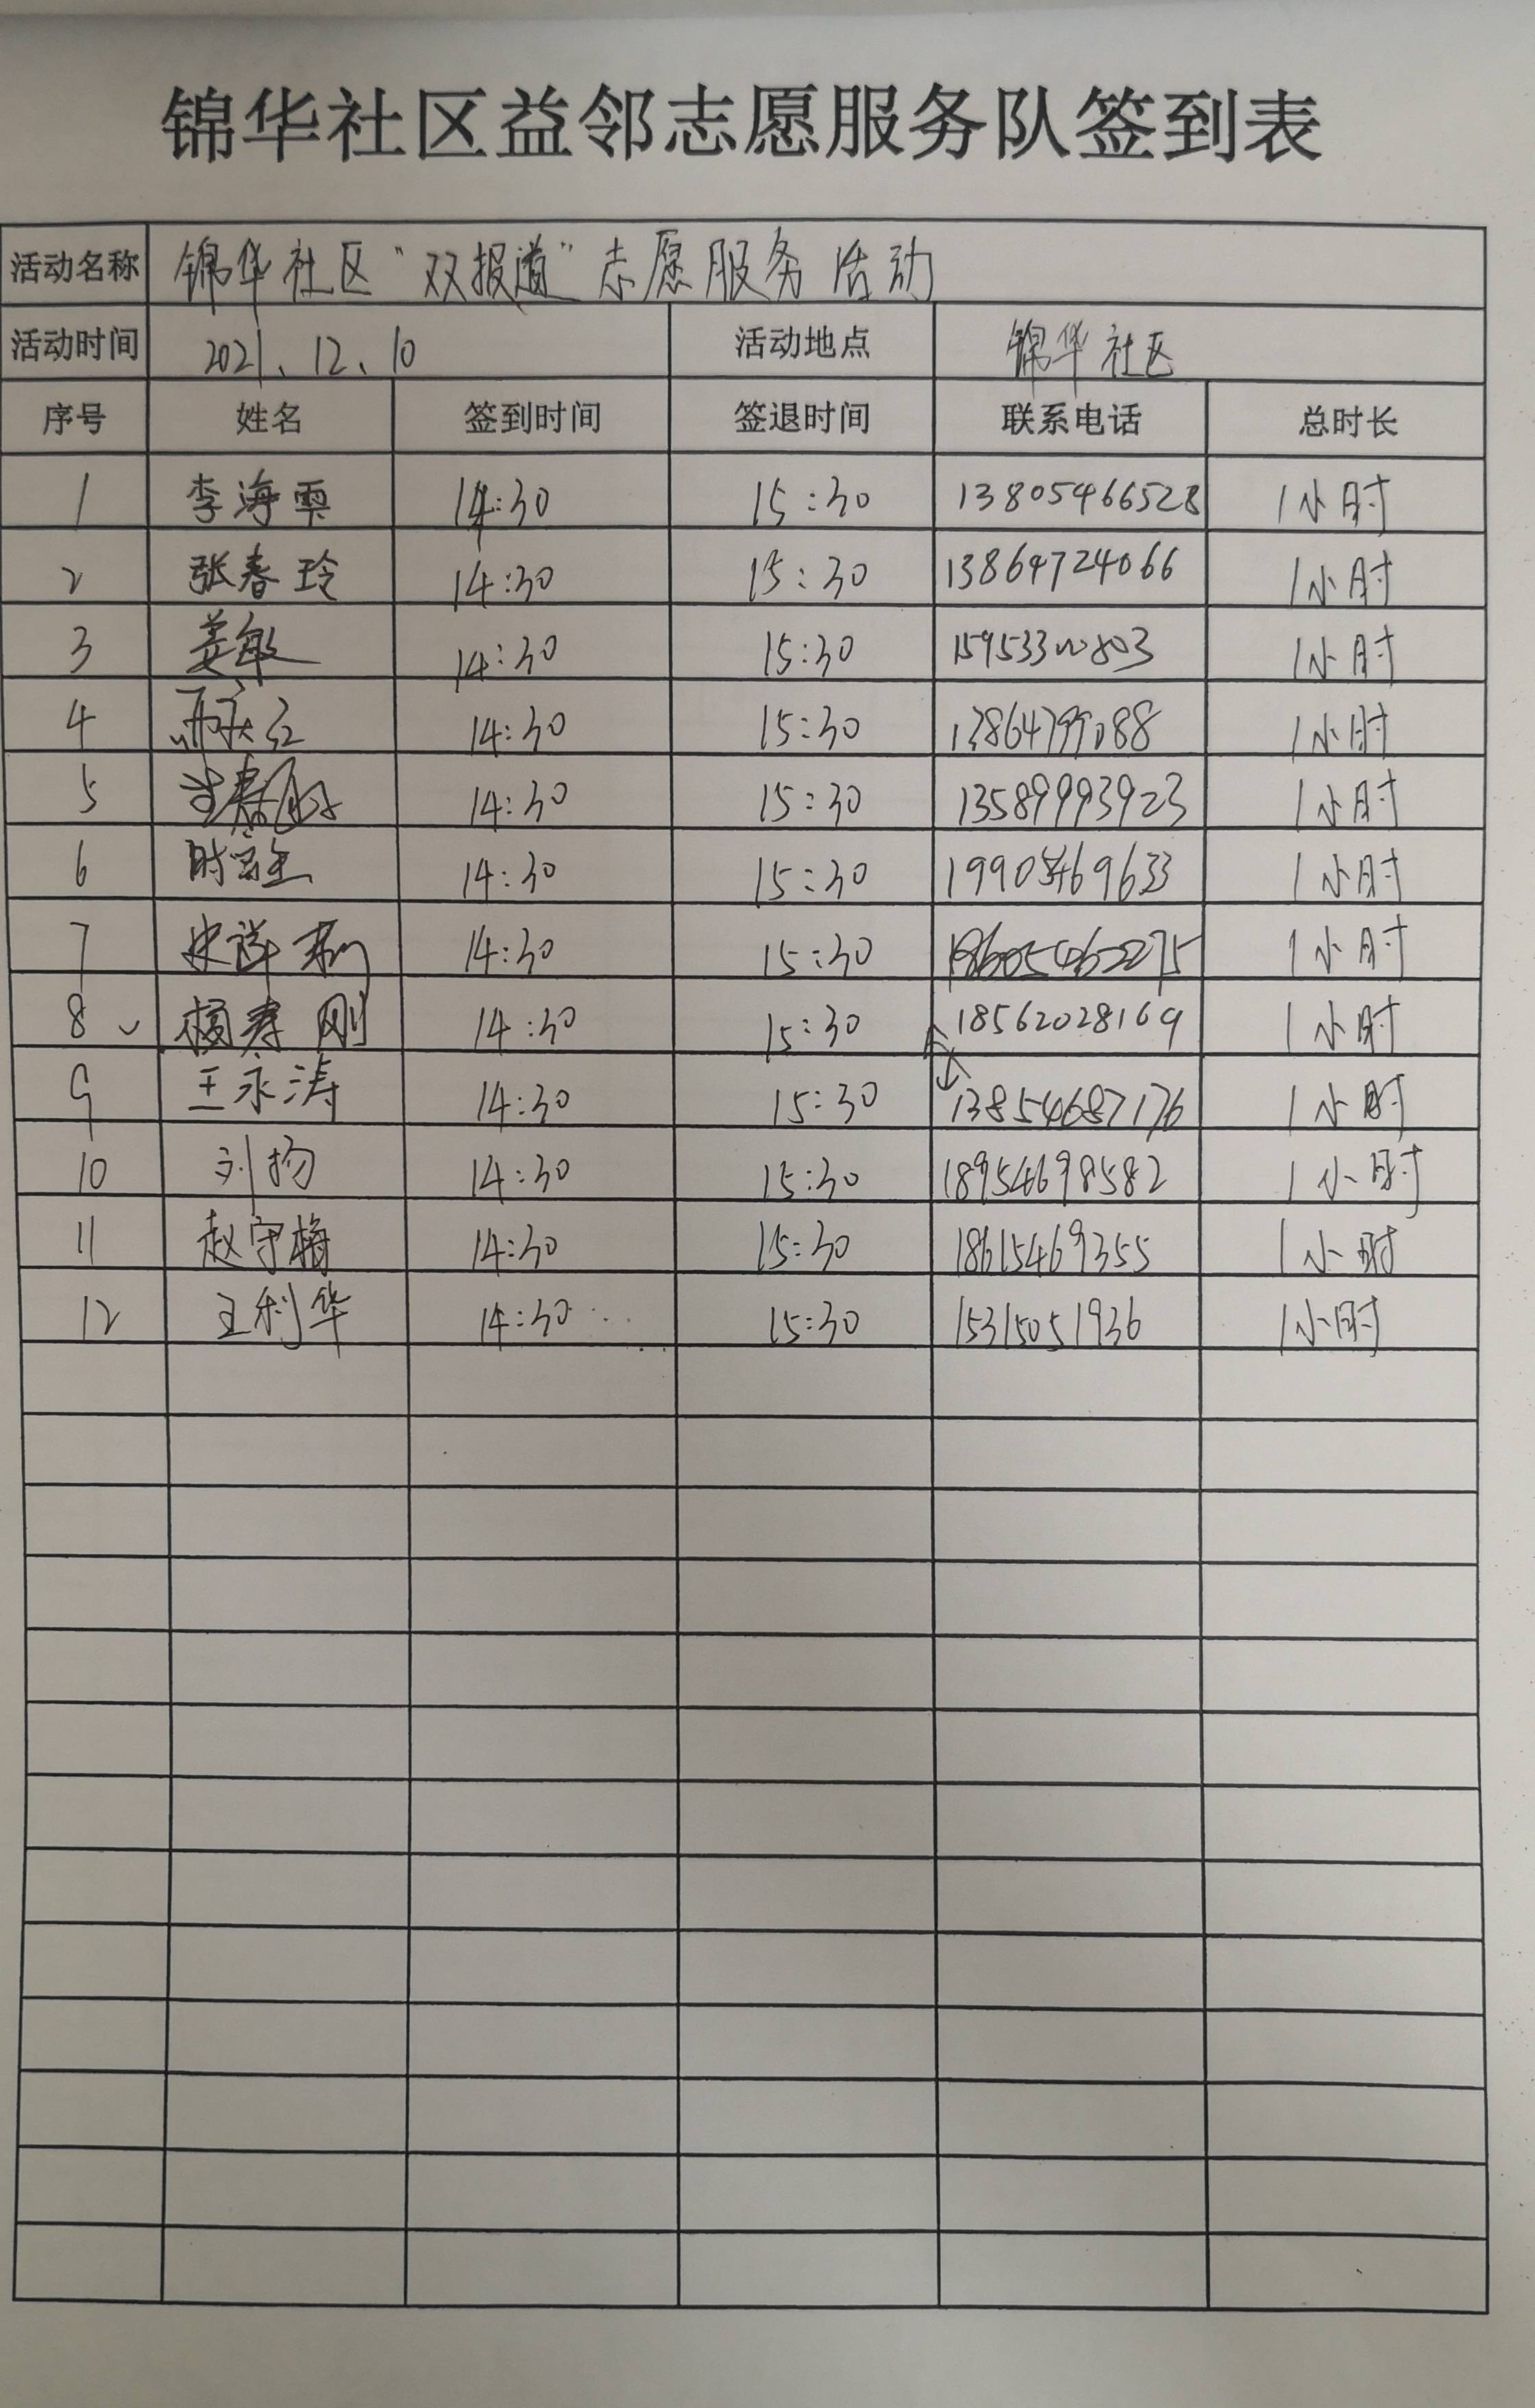 锦华社区益邻志愿服务队签到表
活动名称 锦华社区“双报道”志愿服务活动
活动时间 2021、12、10 活动地点 锦华社区
序号 姓名 签到时间 签退时间 联系电话 总时长
1 李海 14:30 15:30 13805466528 1小时
2 张春玲 14:30 15:30 13864724066 1小时
3 姜敏 14:30 15:30 1小时
4 14:30 15:30 1小时
5 14:30 15:30 13589993923 1小时
6 14:30 15:30 1小时
7 14:30 15:30 1小时
8 杨寿刚 14:30 15:30 18562028169 1小时
9 王永涛 14:30 15:30 13854687176 1小时
10 刘扬 14:30 15:30 18954698582 1小时
11 赵守梅 14:30 15:30 18615469355 1小时
12 王利华 14:30 15:30 15315051936 1小时